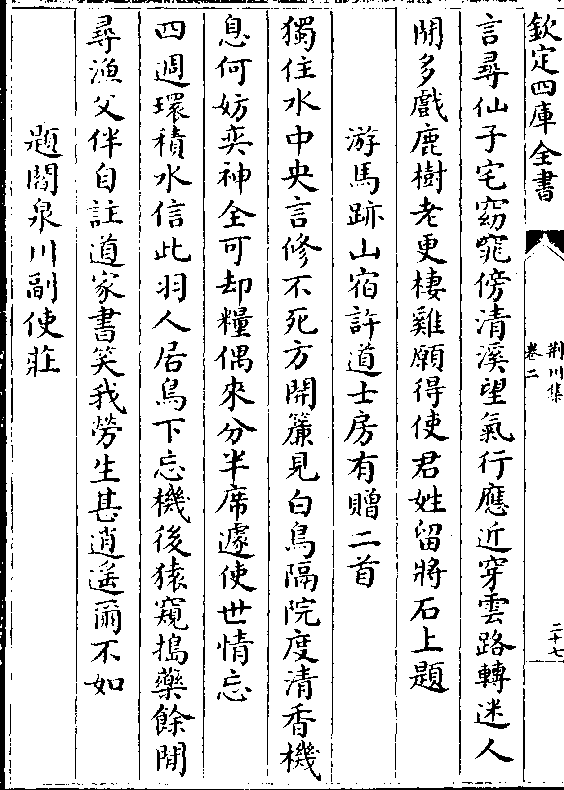 欽定四庫全書
荆川集
卷二
二十七
言尋仙子宅窈窕傍清溪望氣行應近穿雲路轉迷人
閒多戲鹿樹老更棲雞願得使君姓留將石上題
游馬跡山宿許道士房有贈二首
獨住水中央言修不死方開簾見白鳥隔院度清香機
息何妨奕神全可却糧偶來分半席遽使世情忘
四週環積水信此羽人居鳥下忘機後猿窺搗藥餘閒
尋漁父伴自註道家書笑我勞生甚逍遥爾不如
題閻泉川副使莊